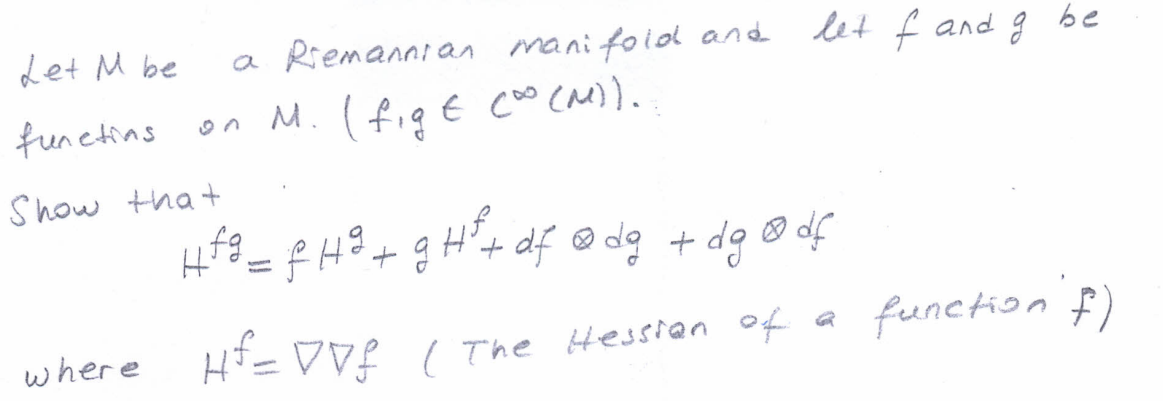 Let M be a Riemannian manifold and let f and g be
functins on M. (f,g ∈ C^∞(M)).
Show that
H^{fg} = f H^g + g H^f + df ⊗ dg + dg ⊗ df
where H^f = ∇∇f ( The Hessian of a function f)